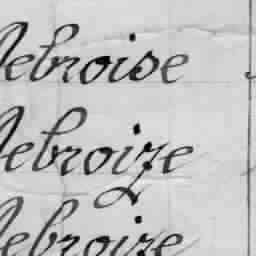 Debroise
Debroize
Debroize